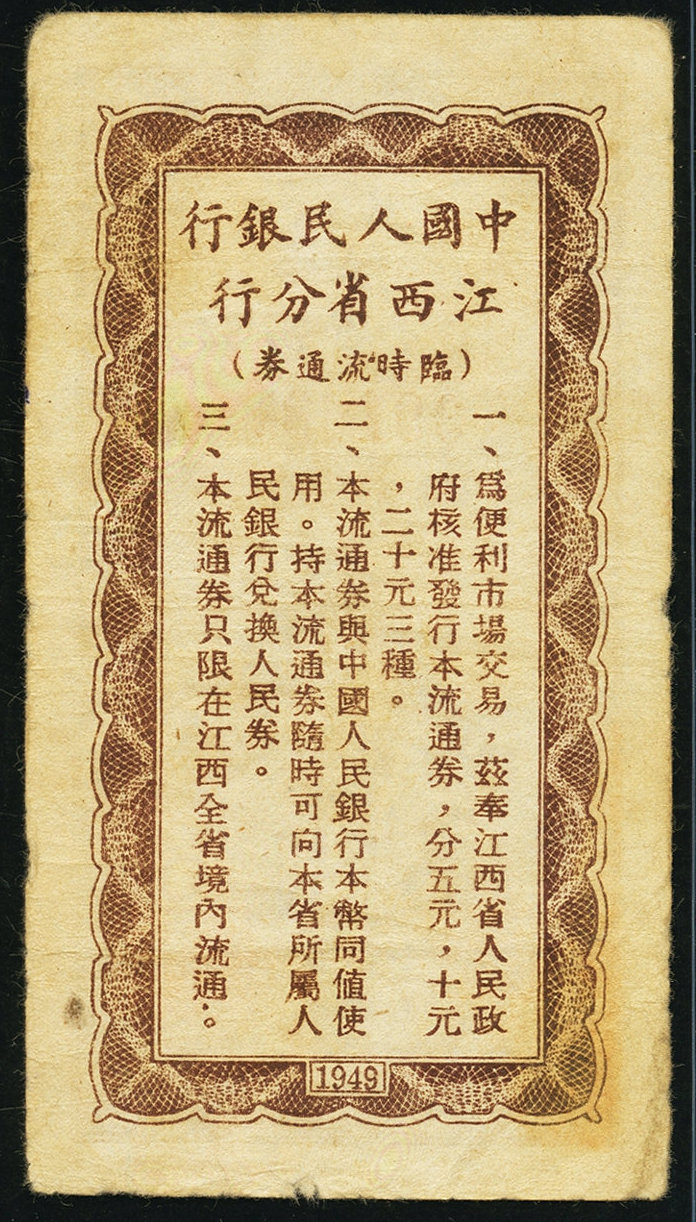 中國人民銀行
江西省分行
（臨時流通券）
一、爲便利市場交易，茲奉江西省人民政
府核准發行本流通券，分五元，十元
，二十元三種。
二、本流通券與中國人民銀行本幣同値使
用。持本流通券隨時可向本省所屬人
民銀行兌換人民券。
三、本流通券只限在江西全省境內流通。
1949